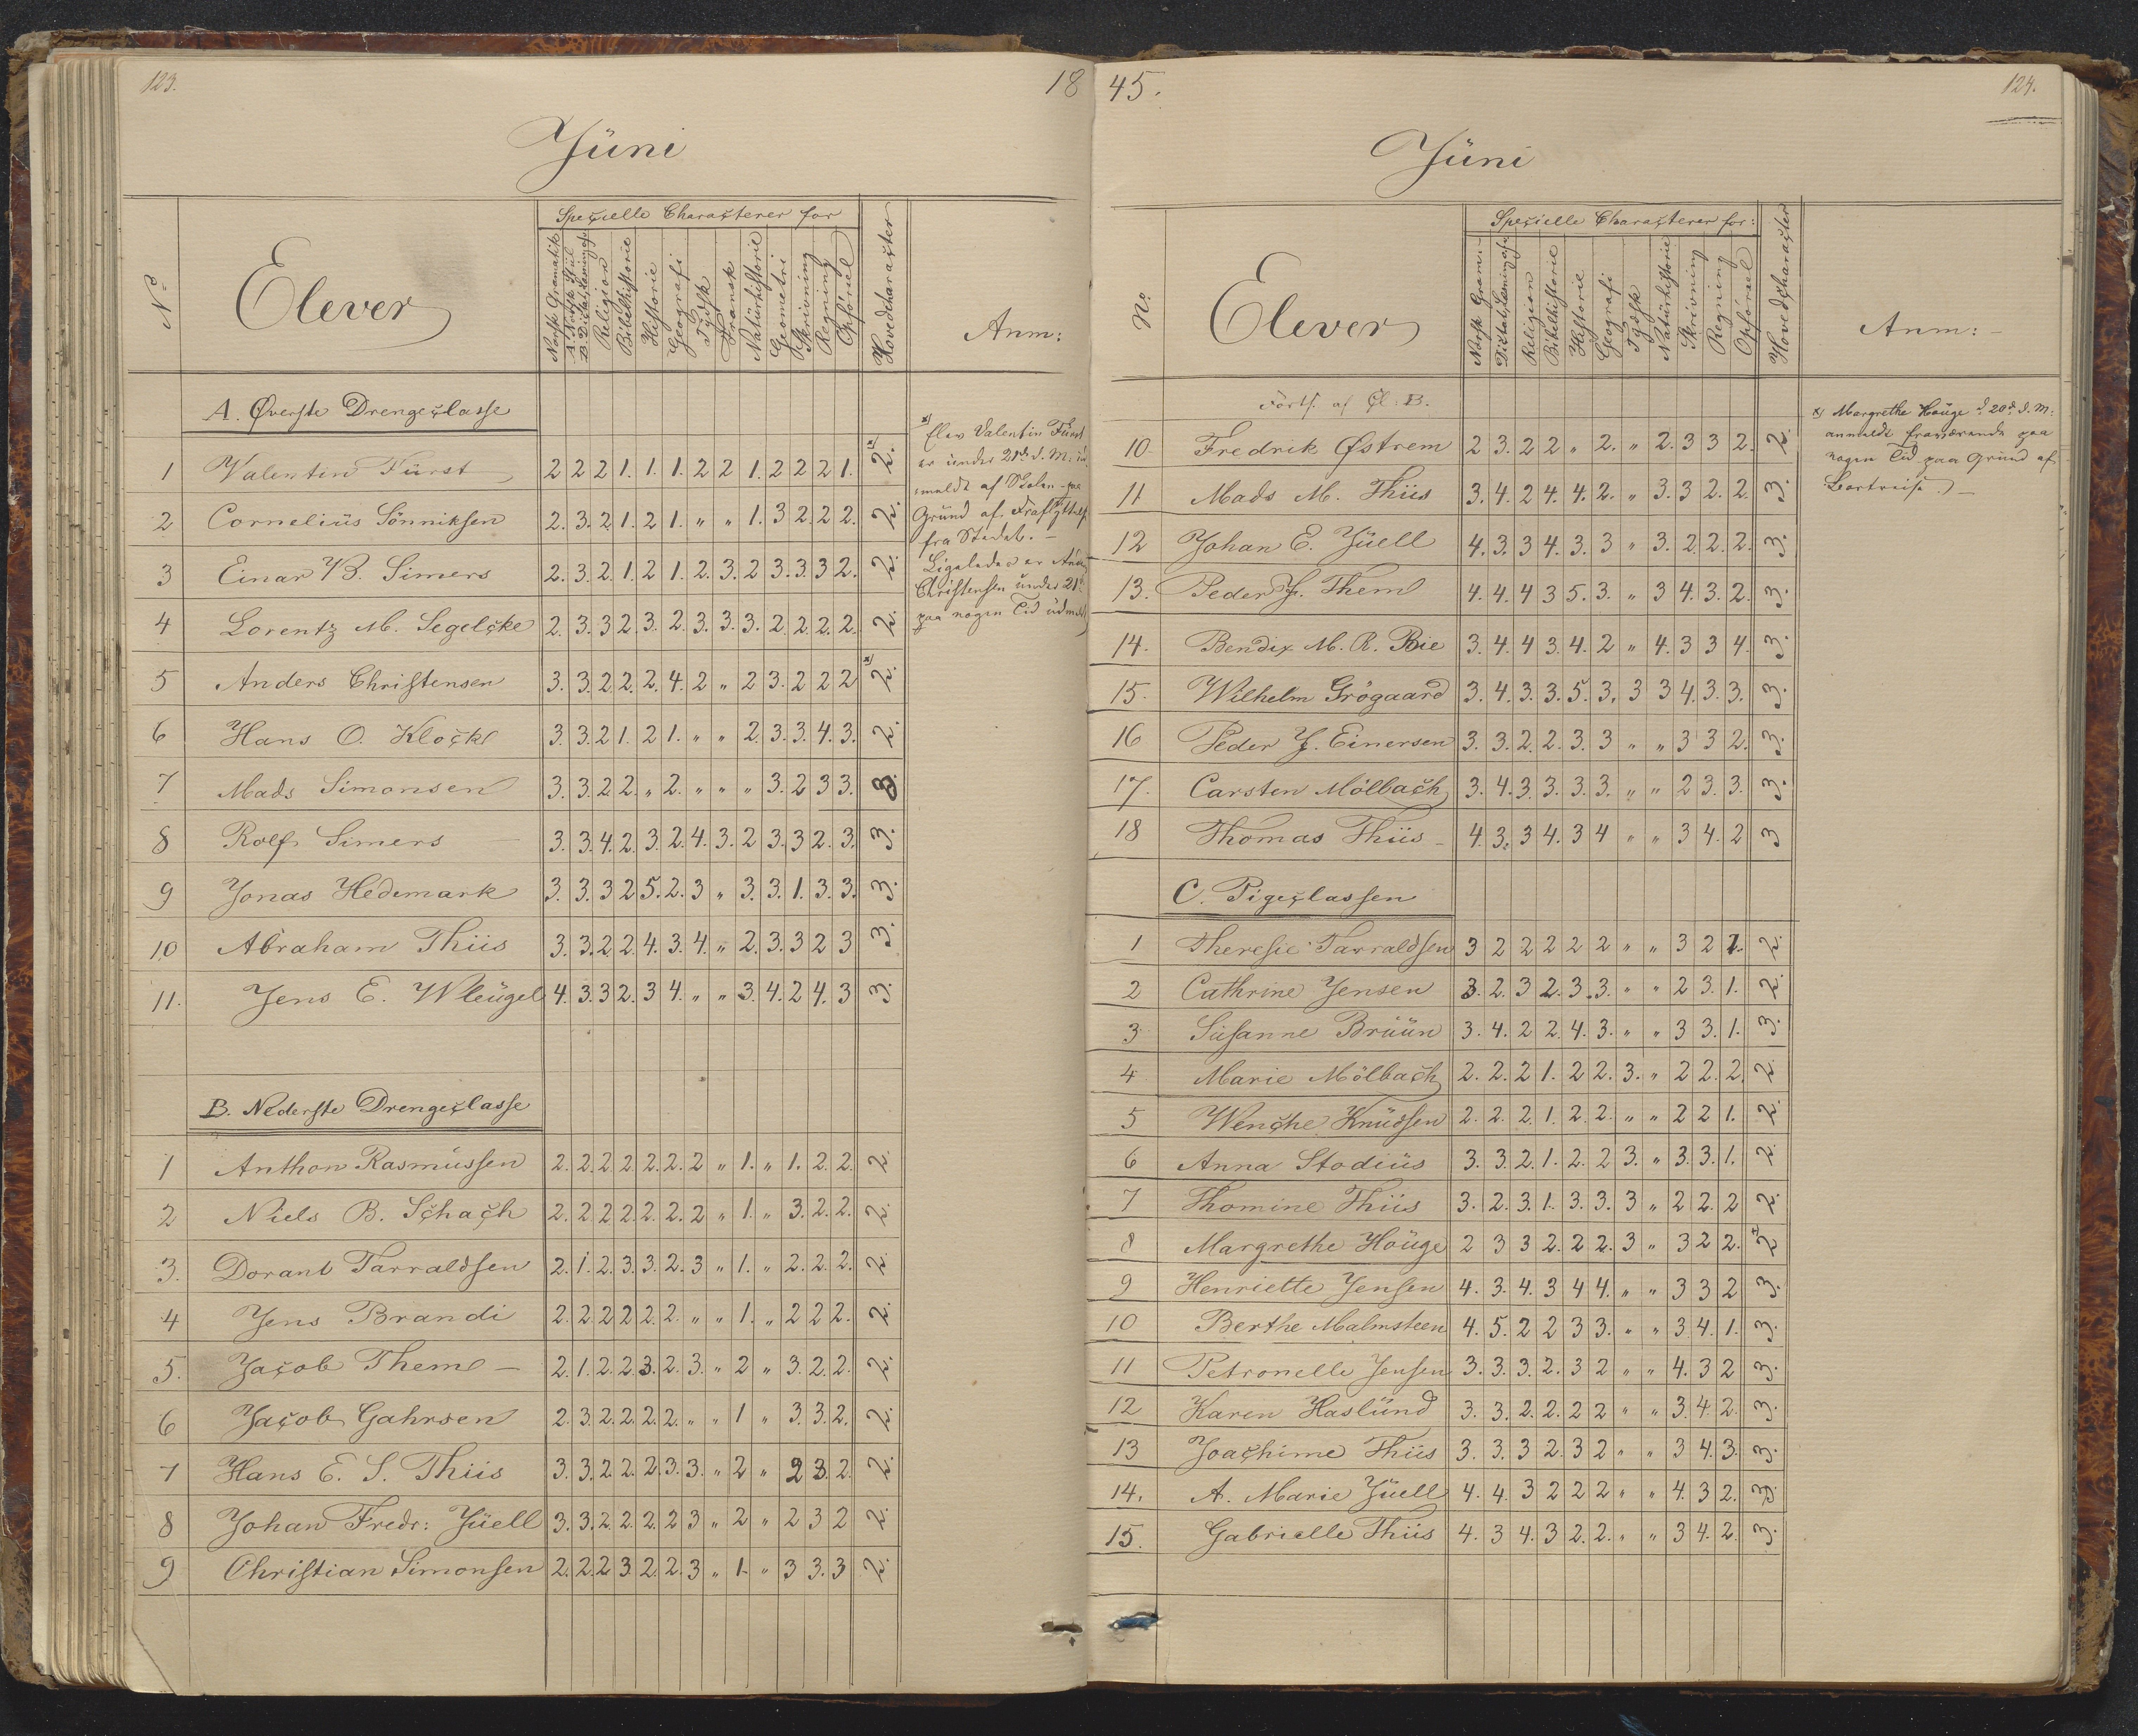 123.
18
Jüni
Nº
Elever
Specielle Characterer for
Norsk Gramatik
A. Norsk Stil
B. Dictatskrivning
Religion
Bibelhistorie
Historie
Geografi
Tydsk
Fransk
Natürhistorie
Geometri
Skrivning
Regning
Opførsel
Hovedcharacter
Anm:
A. Øverste Drengeclasse
1 Valentin Fürst 2 2 2 1. 1. 1. 2 2 1. 2 2 2 1. 2. x)
2 Cornelius Sönniksen 2. 3. 2 1. 2 1. " " 1. 3 2. 2 2. 2.
3 Einar B. Simers 2. 3. 2 1. 2 1. 2. 3. 2 3. 3. 3 2. 2.
4 Lorentz M. Segelcke 2. 3. 3 2. 3. 2. 3. 3. 3. 2. 2. 2. 2. 2.
5 Anders Christensen 3. 3. 2. 2. 2. 4. 2 " 2 3. 2 2 2 2. x)
6 Hans O. Klocke 3. 3. 2 1. 2 1. " " 2. 3. 3. 4. 3. 2.
7 Mads Simonsen 3. 3. 2 2. " 2. " " " 3. 2 3 3. 3.
8 Rolf Simers 3. 3. 4. 2. 3. 2. 4. 3. 2 3. 3 2. 3. 3.
9 Jonas Hedemark 3. 3. 3 2 5. 2. 3 " 3. 3. 1. 3. 3. 3.
10 Abraham Thiis 3. 3. 2 2. 4. 3. 4. " 2. 3. 3 2 3 3.
11. Jens E. Wleügel 4. 3. 3 2. 3 4. " " 3. 4. 2 4. 3 3.
x) Elev Valentin Fürst
er ünder 21de d. M: üd-
meldt af Skolen paa
Gründ af Fraflyttelse
fra Stedet. –
Ligeledes er Anders
Christensen ünder 21de
paa nogen Tid üdmeldt
B. Nederste Drengeclasse
1 Anthon Rasmüssen 2. 2. 2. 2. 2. 2. 2 " 1. " 1. 2. 2. 2.
2 Niels B. Schach 2. 2. 2. 2. 2. 2. 2 " 1. " 3. 2. 2. 2.
3. Dorant Tarraldsen 2. 1. 2. 3. 3. 2. 3 " 1. " 2. 2. 2. 2.
4 Jens Brandi 2. 2. 2 2 2. 2. " " 1. " 2 2 2. 2.
5. Jacob Theme – 2. 1. 2. 2. 3. 2. 3. " 2 " 3. 2. 2. 2.
6 Jacob Gahrsen 2. 3. 2. 2. 2. 2. " " 1 " 3. 3. 2. 2.
7 Hans E. S. Thiis 3. 3. 2. 2. 2. 3. 3. " 2 " 2 3. 2. 2.
8 Johan Fredr: Jüell 3. 3. 2. 2. 2. 2 3 " 2 " 2 3 2 2.
9 Christian Simonsen 2. 2. 2 3. 2. 2. 3 " 1. " 3 3. 3 2.
45.
124.
Jüni
No.
Elever
Specielle Characterer for:
Norsk Gram: –
Dictatskrivning
Religion
Bibelhistorie
Historie
Geografi
Tydsk
Natürhistorie
Skrivning
Regning
Opførsel
Hovedcharacter
Anm: –
Forts. af Cl: B.
10 Fredrik Østrem 2 3. 2 2 " 2. " 2. 3 3 2. 2.
11 Mads M. Thiis 3. 4. 2 4. 4. 2. " 3. 3 2. 2. 3.
12 Johan E. Jüell 4. 3. 3 4. 3. 3 " 3. 2. 2. 2. 3.
13. Peder J. Theme 4. 4. 4 3 5. 3. " 3 4. 3. 2. 3.
14. Bendix M. R. Bie 3. 4. 4 3. 4. 2 " 4. 3 3 4. 3.
15. Wilhelm Grögaard 3. 4. 3. 3. 5. 3. 3 3 4. 3. 3. 3.
16 Peder J. Einersen 3. 3. 2. 2. 3. 3 " " 3 3 2. 3.
17. Carsten Mölbach 3. 4. 3. 3. 3. 3. " " 2 3. 3. 3.
18 Thomas Thiis – 4. 3. 3 4. 3 4 " " 3 4. 2 3
x) Margrethe Houge d. 20de d. M:
anmeldt fraværende paa
nogen Tid paa Gründ af
Bortreise. –
C. Pigeclassen
1 Theresie Tarraldsen 3 2 2 2 2 2 " " 3 2 1. 2.
2 Cathrine Jensen 3. 2. 3 2. 3. 3. " " 2 3. 1. 2.
3 Süsanne Brüün 3. 4. 2 2. 4. 3. " " 3 3. 1. 3.
4 Marie Mölbach 2. 2. 2 1. 2 2. 3. " 2 2. 2. 2.
5 Wenche Knüdsen 2. 2. 2. 1. 2. 2. " " 2 2 1. 2.
6 Anna Stodiüs 3. 3. 2. 1. 2. 2 3. " 3. 3. 1. 2.
7 Thomine Thiis 3. 2. 3. 1. 3. 3. 3 " 2 2. 2 2.
8 Margrethe Houge 2 3 3 2. 2 2. 3 " 3 2 2. 2 x
9 Henriette Jensen 4. 3. 4. 3 4 4. " " 3 3 2 3.
10 Berthe Malmsteen 4. 5. 2 2 3 3. " " 3 4. 1. 3.
11 Petronelle Jensen 3. 3. 3. 2. 3 2 " " 4. 3 2 3.
12 Karen Haslünd 3. 3. 2. 2. 2 2 " " 3. 4. 2. 3.
13 Joachime Thiis 3. 3. 3 2. 3 2 " " 3 4. 3. 3.
14. A. Marie Jüell 4. 4. 3 2 2 2 " " 4. 3 2. 3.
15. Gabrielle Thiis 4. 3 4. 3 2. 2. " " 3 4. 2. 3.